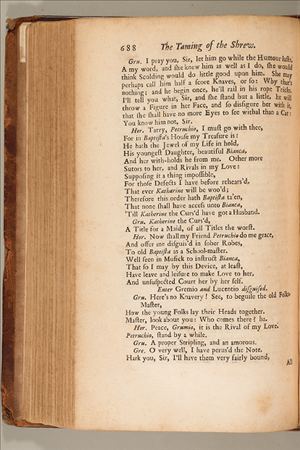 688 The Taming of the Shrew.
Gru. I pray you, Sir, let him go while the Humour lasts,
A my word, and she knew him as well as I do, she would
think Scolding would do little good upon him. She may
perhaps call him half a score Knaves, or so: Why that's
nothing; and he begin once, he'll rail in his rope Tricks.
I'll tell you what, Sir, and she stand but a little, he will
throw a Figure in her Face, and so disfigure her with it,
that she shall have no more Eyes to see withal than a Cat:
You know him not, Sir.
Hor. Tarry, Petruchio, I must go with thee,
For in Baptista's House my Treasure is:
He hath the Jewel of my Life in hold,
His youngest Daughter, beautiful Bianca,
And her with-holds he from me. Other more
Sutors to her, and Rivals in my Love:
Supposing it a thing impossible,
For those Defects I have before rehears'd,
That ever Katharine will be woo'd;
Therefore this order hath Baptista ta'en,
That none shall have access unto Bianca,
'Till Katharine the Curs'd have got a Husband.
Gru. Katharine the Curs'd,
A Title for a Maid, of all Titles the worst.
Hor. Now shall my Friend Petruchio do me grace,
And offer me disguis'd in sober Robes,
To old Baptista as a School-master.
Well seen in Musick to instruct Bianca,
That so I may by this Device, at least,
Have leave and leisure to make Love to her,
And unsuspected Court her by her self.
Enter Gremio and Lucentio disguised.
Gru. Here's no Knavery! See, to beguile the old Folks
Master,
How the young Folks lay their Heads together.
Master, look about you: Who comes there? ha.
Hor. Peace, Grumio, it is the Rival of my Love.
Petruchio, stand by a while.
Gru. A proper Stripling, and an amorous.
Gre. O very well, I have perus'd the Note.
Hark you, Sir, I'll have them very fairly bound,
All